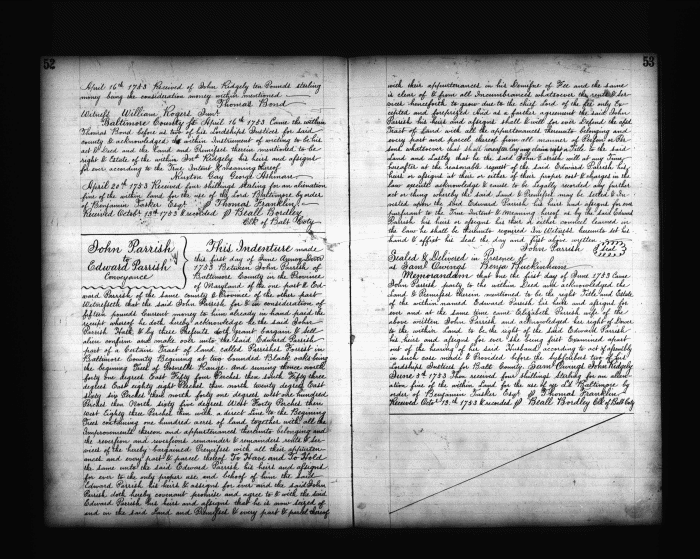 52
April 16th 1753 Received of John Ridgely ten Pounds sterling
money being the consideration money within mentioned
Thomas Bond
Witness William Rogers Junr
Baltimore County Sc April 16th 1753 Came the within
Thomas Bond before us two of his Lordships Justices for said
county & acknowledged the within Instrument of writing to be his
act & Deed and the Land and Premises therein mentioned to be
right & Estate of the within Jno. Ridgely his heirs and assigns
for ever according to the True Intent & meaning thereof
George Ashman
April 20th 1753 Received four shillings sterling for an alienation
fine of the within land for the use of the Lord Baltimore by order
of Benjamin Tasker Esqr. Thomas Franklin
Received Octobr 13th 1753 & recorded Beall Bordley
Clk of Balt Coty
John Parrish
to
Edward Parrish
Conveyance
This Indenture made
this first day of June Anno Dom
1753 Between John Parrish of
Baltimore County in the Province
of Maryland of the one part & Ed-
ward Parrish of the same county & Province of the other part
Witnesseth that the said John Parrish for & in consideration of
fifteen pounds Current money to him already in hand paid the
receipt whereof he doth hereby acknowledge he the said John
Parrish Hath & by these Presents doth grant bargain & sell
alien confirm and make over unto the said Edward Parrish
part of a Certain Tract of land called Parrishes Forest in
Baltimore County Beginning at two bounded Black oaks being
the beginning Tree of Range and running thence north
forty one degrees East fifty four Perches then South fifty three
degrees East eighty eight Perches then north twenty degrees East
sixty six Perches then north forty one degrees west one hundred
Perches then North sixty five degrees West Forty Perches then
West Eighty three Perches then with a direct Line to the Beginning
Trees containing one hundred acres of land, together with all the
Improvements thereon and appurtenances thereunto belonging and
the reversion and reversions remainder & remainders rents & Ser-
vices of the hereby bargained Premises with all their appurten-
ances and every part & parcel thereof To Have and To Hold
the same unto the said Edward Parrish his heirs and assigns
for ever to the only proper use and behoof of him the said
Edward Parrish his heirs & assigns for ever and the said John
Parrish doth hereby covenant promise and agree to & with the said
Edward Parrish his heirs and assigns that he is now seized of
and in the said Land and Premises & every part & parcel thereof
53
with their appurtenances in his Demesne of Fee and the same
is clear of & from all Incumbrances whatsoever the rents & Ser-
vices henceforth to grow due to the chief Lord of the fee only Ex-
cepted and foreprized And as a further agreement the said John
Parrish his heirs and assigns shall & will for ever Defend the afsd
Tract of Land with all the appurtenances thereunto belonging and
every part and parcel thereof from all manner of Person or Per-
sons whatsoever that shall any right or Title to the said
Land and lastly that he the said John Parrish will at any Time
hereafter at the reasonable request of the said Edward Parrish his
heirs or assigns at their or either of their proper cost & charges in the
law execute acknowledge & cause to be legally recorded any further
act or thing whereby the said Land & Premises may be settled & In-
sured upon the said Edward Parrish his heirs and assigns for ever
pursuant to the True Intent & Meaning hereof as by the said Edward
Parrish his heirs or assigns his their or either council learned in
the law he shall be thereunto required In Witness hereunto set his
hand & affixt his seal the day and first above written
John Parrish Seal
Sealed & Delivered in Presence of
us Saml. Owings Benja. Buckingham
Memorandum that one the first day of June 1753 Came
John Parrish party to the within Deed and acknowledged the
Land & Premises therein mentioned to be the right Title and Estate
of the within named Edward Parrish his heirs and assigns for
ever and at the same time came Elizabeth Parrish wife of the
above written John Parrish and acknowledged her right of Dower
to the within Land to be the right of the said Edward Parrish
his heirs and assigns for ever She being first Examined apart
out of the hearing of her said Husband according to act of assembly
in such case made & Provided before the subscribers two of his
Lordships Justices for Balt County. Saml Owings John Ridgely
June 5th 1753 Then received four Shillings sterling for an alien-
ation fine of the within Land for the use of ye Ld Baltimore by
order of Benjamin Tasker Esqr Thomas Franklin
Received Octor 13th 1753 & recorded Beall Bordley Clk of Balt Coty